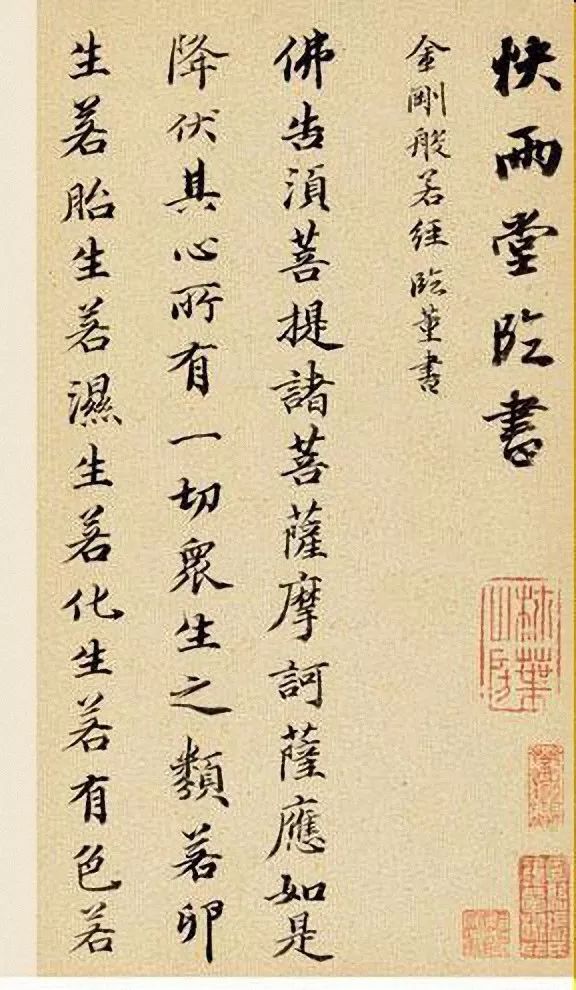 快雨堂臨書
金剛般若經臨董書
佛告須菩提諸菩薩摩訶薩應如是
降伏其心所有一切眾生之類若卵
生若胎生若濕生若化生若有色若